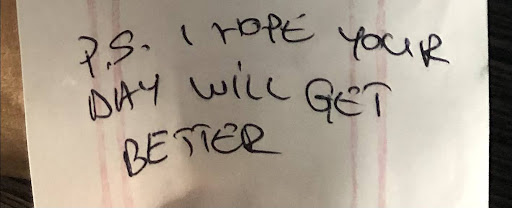 P.S. I HOPE YOUR
DAY WILL GET
BETTER